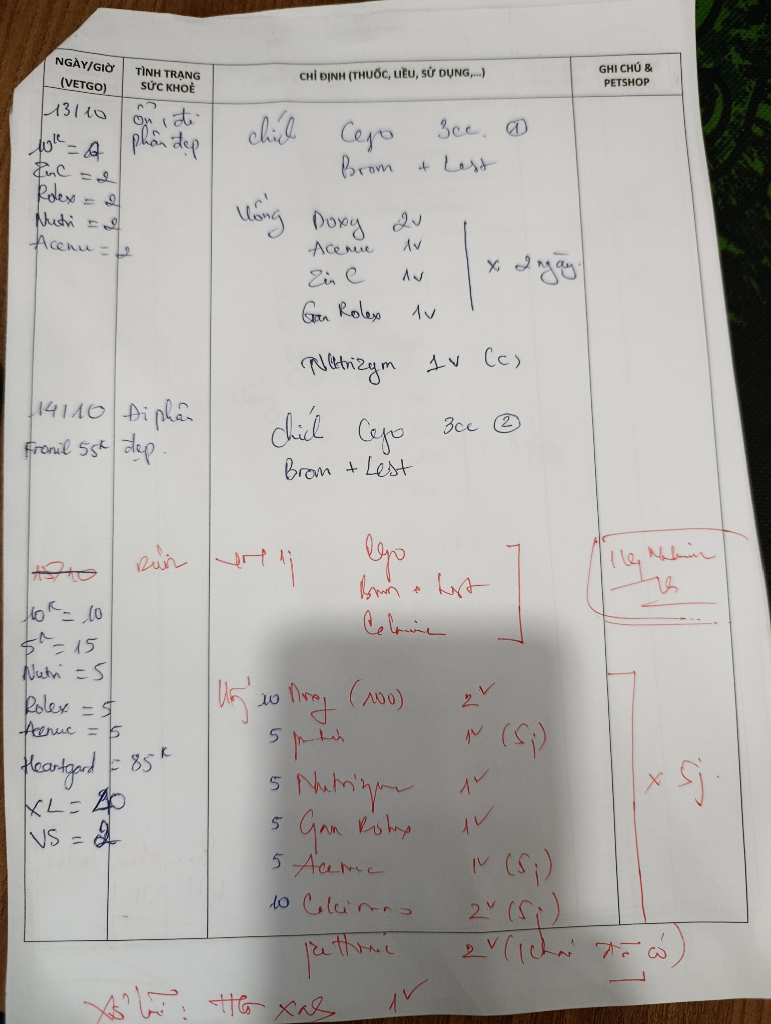 NGÀY/GIỜ
(VETGO)
TÌNH TRẠNG
SỨC KHOẺ
CHỈ ĐỊNH (THUỐC, LIỀU, SỬ DỤNG,...)
GHI CHÚ &
PETSHOP
13/10
10K = 2
ZinC = 2
Rolex = 2
Nutri = 2
Acenuc = 2
Ổn, đi
phân đẹp
chích Cefo 3cc. ①
Brom + Lest
Uống Doxy 2v
Acenuc 1v
Zin C 1v
Gan Rolex 1v
x 2 ngày.
Nutrizym 1v (C)
14/10
Fronil 55K
Đi phân
đẹp.
chích Cefo 3cc ②
Brom + Lest
15/10
10K = 10
5K = 15
Nutri = 5
Rolex = 5
Acenuc = 5
Heartgard = 85K
XL = 20
VS = 2
Cefo
Brom + Lest
Uống 10 Doxy (100) 2v
5 1v (5j)
5 Nutrizym 1v
5 Gan Rolex 1v
5 Acenuc 1v (5j)
10 2v (5j)
x 5j.
2v (đã có)
Xổ lãi: 1v